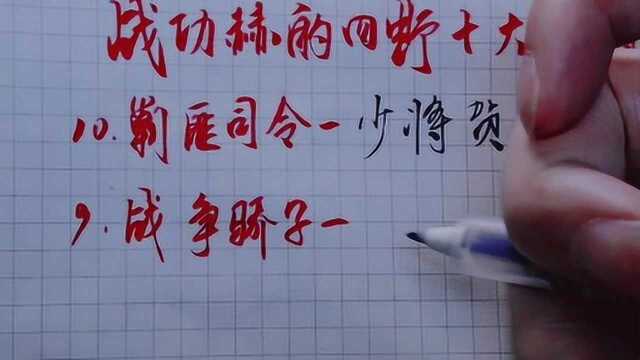 战功赫的四野十大
10.剿匪司令-少将贺
9.战争骄子-